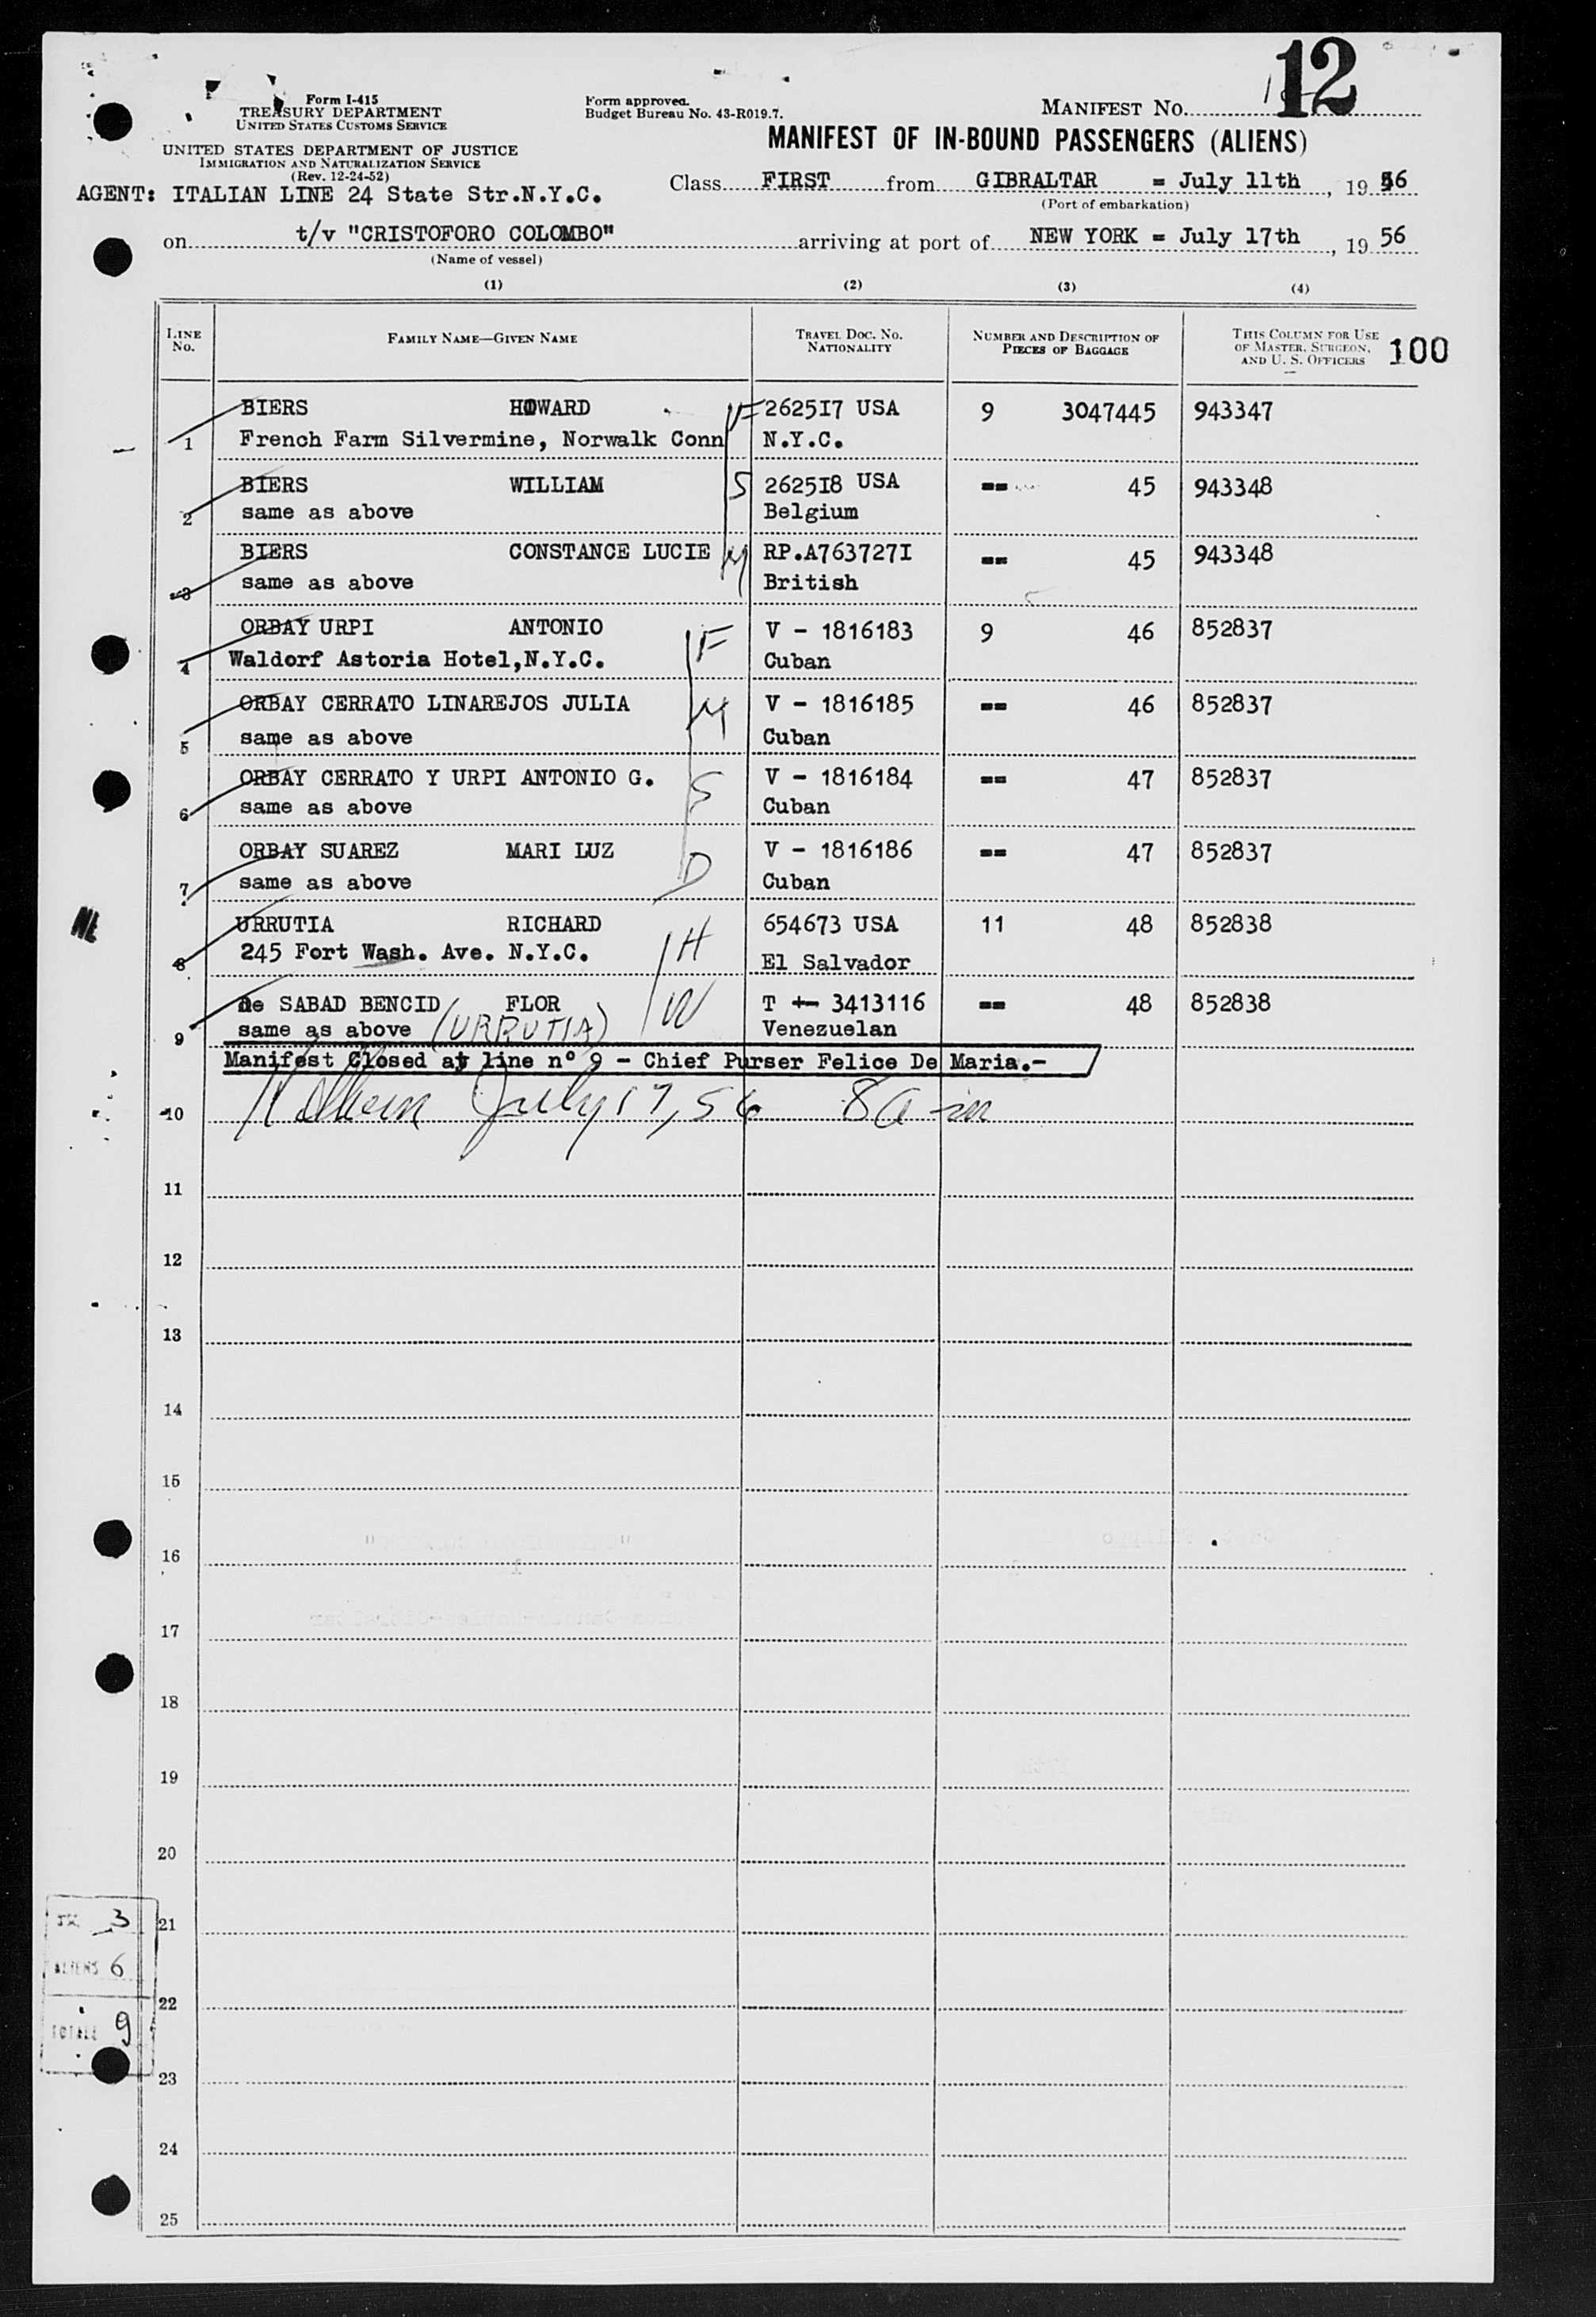 12
Form I-415
TREASURY DEPARTMENT
UNITED STATES CUSTOMS SERVICE
UNITED STATES DEPARTMENT OF JUSTICE
IMMIGRATION AND NATURALIZATION SERVICE
(Rev. 12-24-52)
Form approved.
Budget Bureau No. 43-R019.7.
MANIFEST NO.
MANIFEST OF IN-BOUND PASSENGERS (ALIENS)
AGENT: ITALIAN LINE 24 State Str.N.Y.C.
Class FIRST from GIBRALTAR = July 11th, 19 56
(Port of embarkation)
on t/v "CRISTOFORO COLOMBO" arriving at port of NEW YORK = July 17th, 19 56
(Name of vessel)
(1) (2) (3) (4)
LINE NO. FAMILY NAME—GIVEN NAME TRAVEL DOC. NO. NATIONALITY NUMBER AND DESCRIPTION OF PIECES OF BAGGAGE THIS COLUMN FOR USE OF MASTER, SURGEON, AND U. S. OFFICERS 100
BIERS HOWARD F 2625I7 USA 9 3047445 943347
1 French Farm Silvermine, Norwalk Conn N.Y.C.
BIERS WILLIAM S 2625I8 USA == 45 943348
2 same as above Belgium
BIERS CONSTANCE LUCIE M RP.A763727I == 45 943348
3 same as above British
ORBAY URPI ANTONIO F V - 1816183 9 46 852837
4 Waldorf Astoria Hotel,N.Y.C. Cuban
ORBAY CERRATO LINAREJOS JULIA M V - 1816185 == 46 852837
5 same as above Cuban
ORBAY CERRATO Y URPI ANTONIO G. S V - 1816184 == 47 852837
6 same as above Cuban
ORBAY SUAREZ MARI LUZ D V - 1816186 == 47 852837
7 same as above Cuban
URRUTIA RICHARD H 654673 USA 11 48 852838
8 245 Fort Wash. Ave. N.Y.C. El Salvador
de SABAD BENCID FLOR W T - 3413116 == 48 852838
9 same as above (URRUTIA) Venezuelan
Manifest Closed at line n° 9 - Chief Purser Felice De Maria.-
10 July 17, 56 8 A m
11
12
13
14
15
16
17
18
19
20
3 21
ALIENS 6
22
TOTALE 9
23
24
25